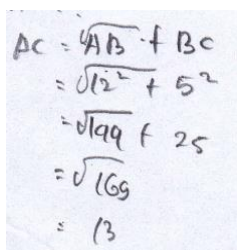 AC = √AB + BC
= √12² + 5²
= √144 + 25
= √169
= 13